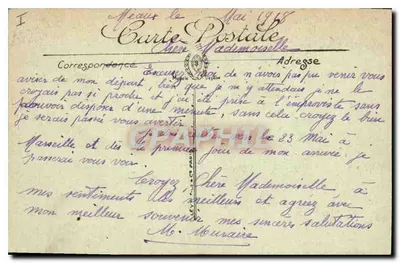 I
Meaux le Mai 1918
Carte Postale
Chère Mademoiselle
Correspondance Adresse
Excusez moi de n'avoir pas pu venir vous
aviser de mon départ, bien que je m'y attendais je ne le
croyais pas si proche j'ai été pris à l'improviste sans
pouvoir disposé d'une minute, sans cela croyez le bien
je serais passé vous avertir
23 Mai à
Marseille et dès premier jour de mon arrivée, je
passerai vous voir
Croyez Chère Mademoiselle à
mes sentiments les meilleurs et agréez avec
mon meilleur souvenir mes sincères salutations
M. Muraire